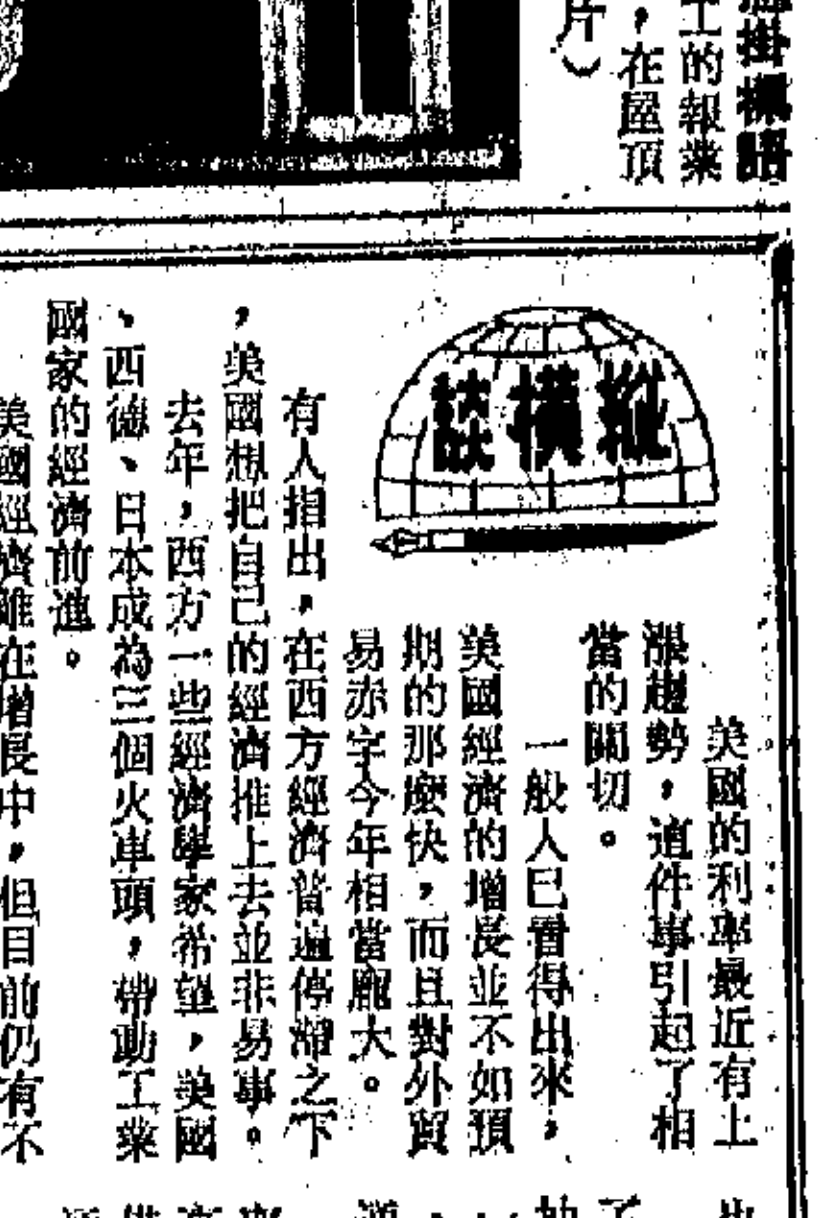 掛標語
工的報業
，在屋頂
片）
縱橫談
美國的利率最近有上
漲趨勢，這件事引起了相
當的關切。
一般人已看得出來，
美國經濟的增長並不如預
期的那麼快，而且對外貿
易赤字今年相當龐大。
有人指出，在西方經濟普遍停滯之下
，美國想把自己的經濟推上去並非易事。
去年，西方一些經濟學家希望，美國
、西德、日本成為三個火車頭，帶動工業
國家的經濟前進。
美國經濟雖在增長中，但目前仍有不